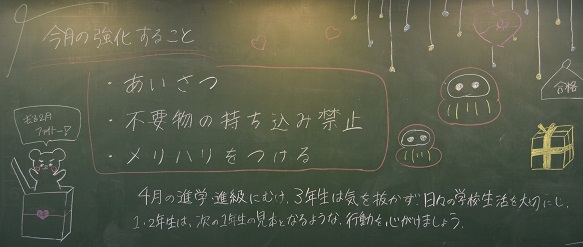 今月の強化すること
・あいさつ
・不要物の持ち込み禁止
・メリハリをつける
4月の進学・進級にむけ、3年生は気を抜かず日々の学校生活を大切にし、
1・2年生は、次の1年生の見本となるような、行動を心がけましょう。
2月
ファイトー
合格